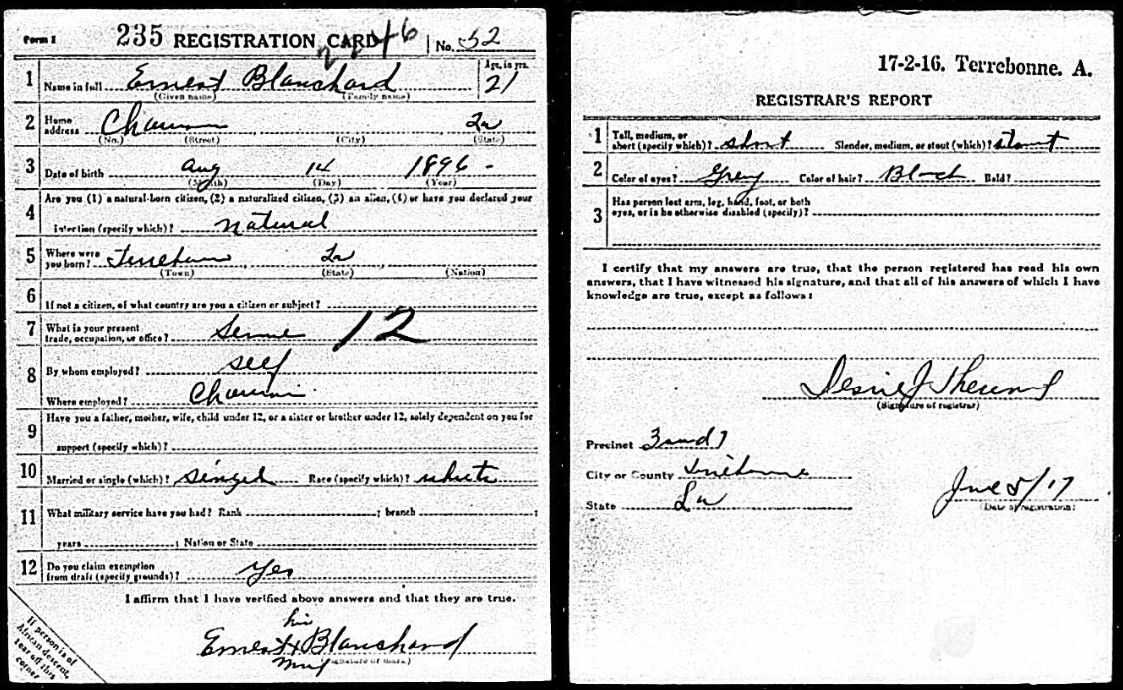 Form 1 235 REGISTRATION CARD No. 52
1 Name in full Ernest Blanchard Age, in yrs. 21
(Given name) (Family name)
2 Home address Chauvin La
(No.) (Street) (City) (State)
3 Date of birth Aug 14 1896 -
(Month) (Day) (Year)
4 Are you (1) a natural-born citizen, (2) a naturalized citizen, (3) an alien, (4) or have you declared your
intention (specify which)? natural
5 Where were you born? La
(Town) (State) (Nation)
6 If not a citizen, of what country are you a citizen or subject?
7 What is your present trade, occupation, or office? 12
8 By whom employed? self
Where employed? Chauvin
9 Have you a father, mother, wife, child under 12, or a sister or brother under 12, solely dependent on you for
support (specify which)?
10 Married or single (which)? Singel Race (specify which)? white
11 What military service have you had? Rank ; branch ;
years ; Nation or State
12 Do you claim exemption from draft (specify grounds)? Yes
I affirm that I have verified above answers and that they are true.
his
Ernest X Blanchard
(Signature or mark)
If person is of African descent, tear off this corner
17-2-16. Terrebonne. A.
REGISTRAR'S REPORT
1 Tall, medium, or short (specify which)? short Slender, medium, or stout (which)? stout
2 Color of eyes? Grey Color of hair? Black Bald?
3 Has person lost arm, leg, hand, foot, or both
eyes, or is he otherwise disabled (specify)?
I certify that my answers are true, that the person registered has read his own
answers, that I have witnessed his signature, and that all of his answers of which I have
knowledge are true, except as follows:
(Signature of registrar)
Precinct 3 ward 7
City or County Terrebonne
State La June 5/17
(Date of registration)